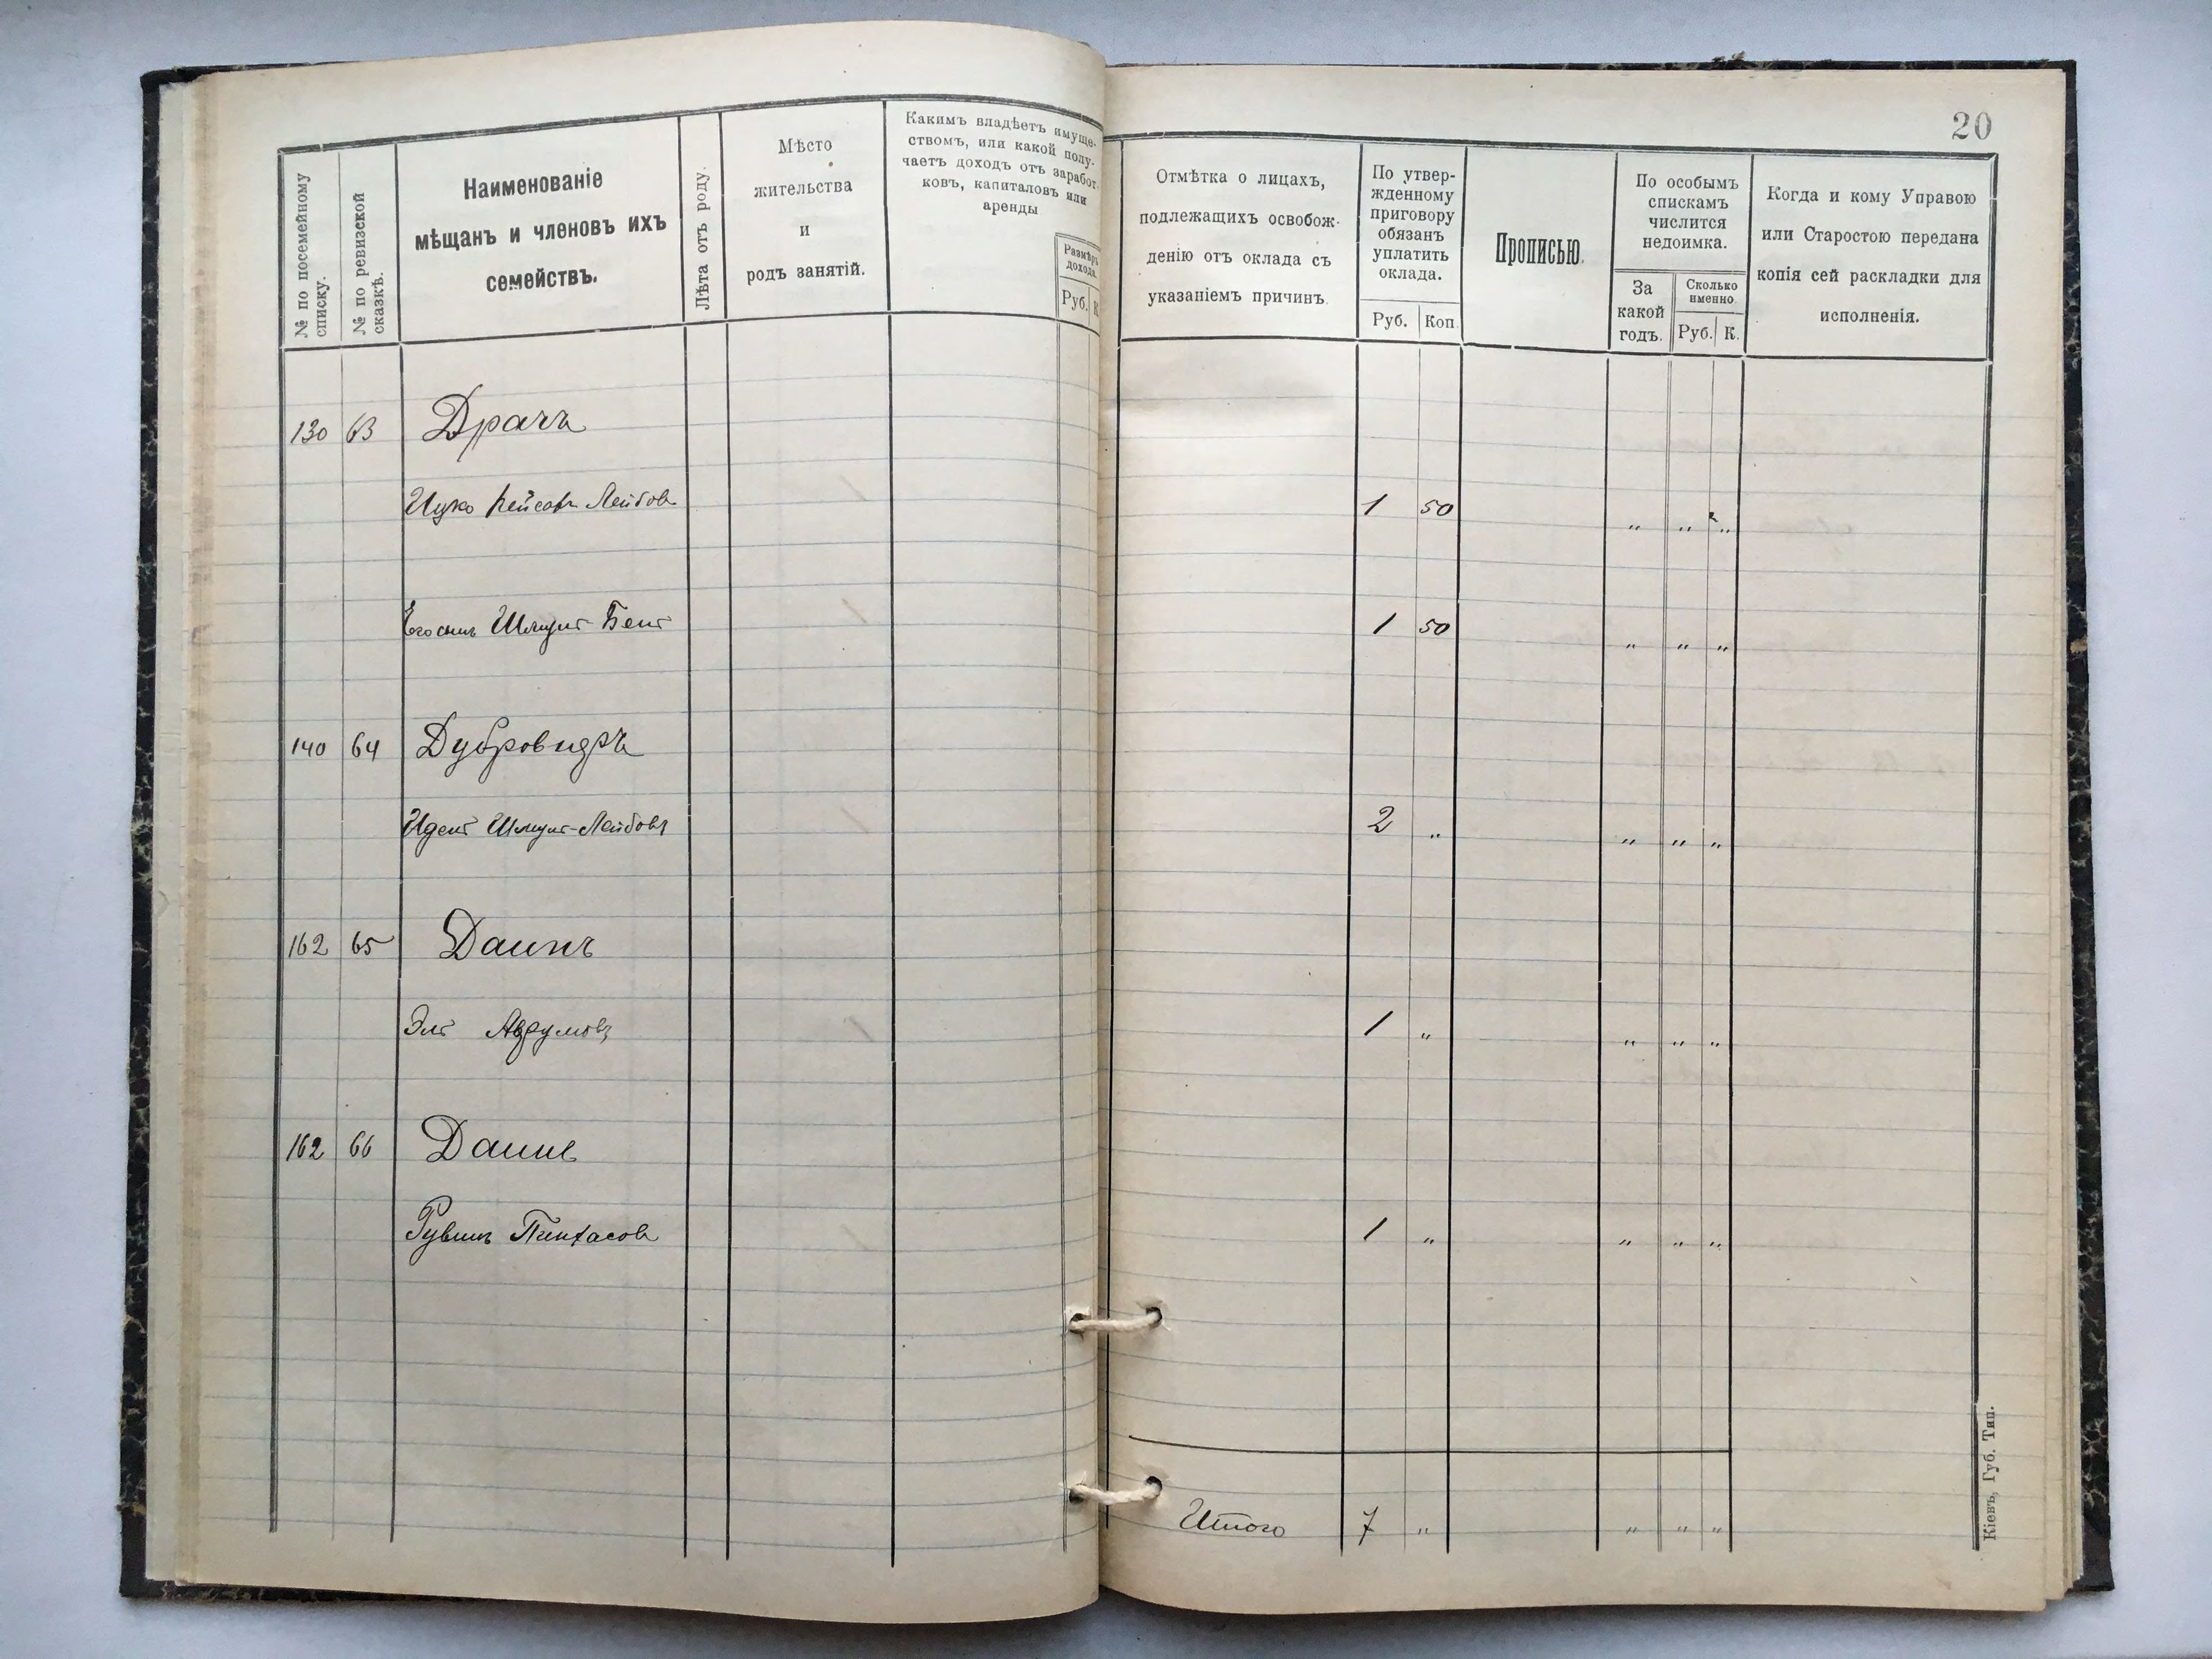 № по посемейному
списку.
№ по ревизской
сказкѣ.
Наименованіе
мѣщанъ и членовъ ихъ
семействъ.
Лѣта отъ роду.
Мѣсто
жительства
и
родъ занятій.
Какимъ владѣетъ имуще-
ствомъ, или какой полу-
чаетъ доходъ отъ заработ-
ковъ, капиталовъ или
аренды
Размѣръ
дохода.
Руб. К.
20
Отмѣтка о лицахъ,
подлежащихъ освобож-
денію отъ оклада съ
указаніемъ причинъ.
По утвер-
жденному
приговору
обязанъ
уплатить
оклада.
Руб. Коп.
Прописью.
По особымъ
спискамъ
числится
недоимка.
За
какой
годъ.
Сколько
именно
Руб. К.
Когда и кому Управою
или Старостою передана
копія сей раскладки для
исполненія.
130 63 Драчъ
Ицко Лейбов 1 50 " " "
Его сынъ Шмуль Бент 1 50 " " "
140 64 Дубровиръ
Шмуль-Лейбовъ 2 " " " "
162 65 Даинъ
Эль Аврумовъ 1 " " " "
162 66 Даинъ
Рувинъ Пинхасовъ 1 " " " "
Итого 7 " " " "
Кіевъ, Губ. Тип.